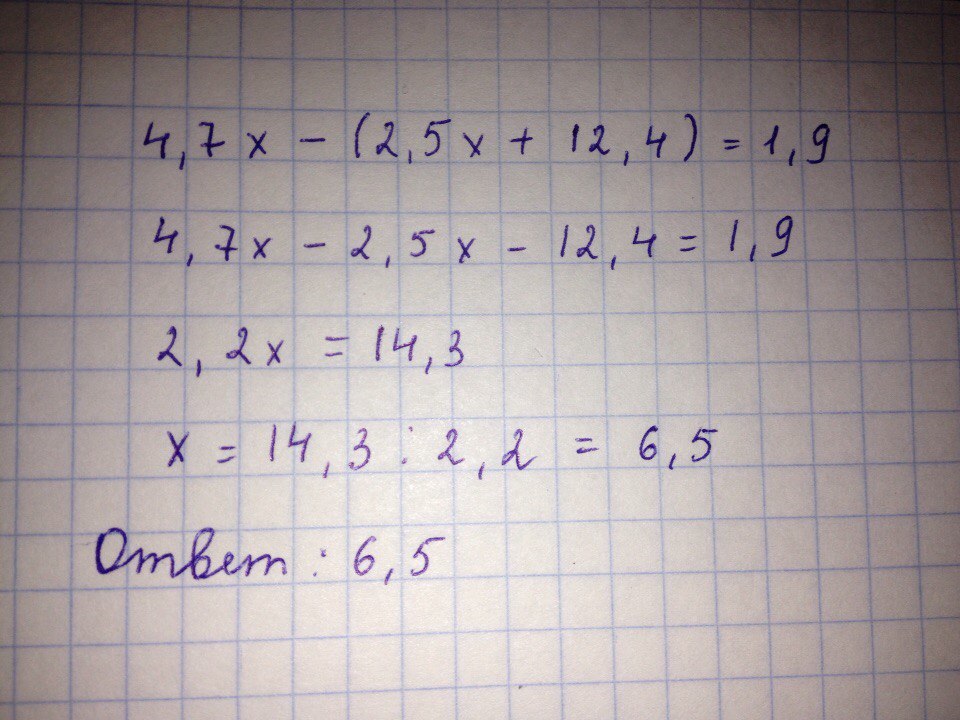 4,7x - (2,5x + 12,4) = 1,9
4,7x - 2,5x - 12,4 = 1,9
2,2x = 14,3
x = 14,3 : 2,2 = 6,5
Ответ: 6,5